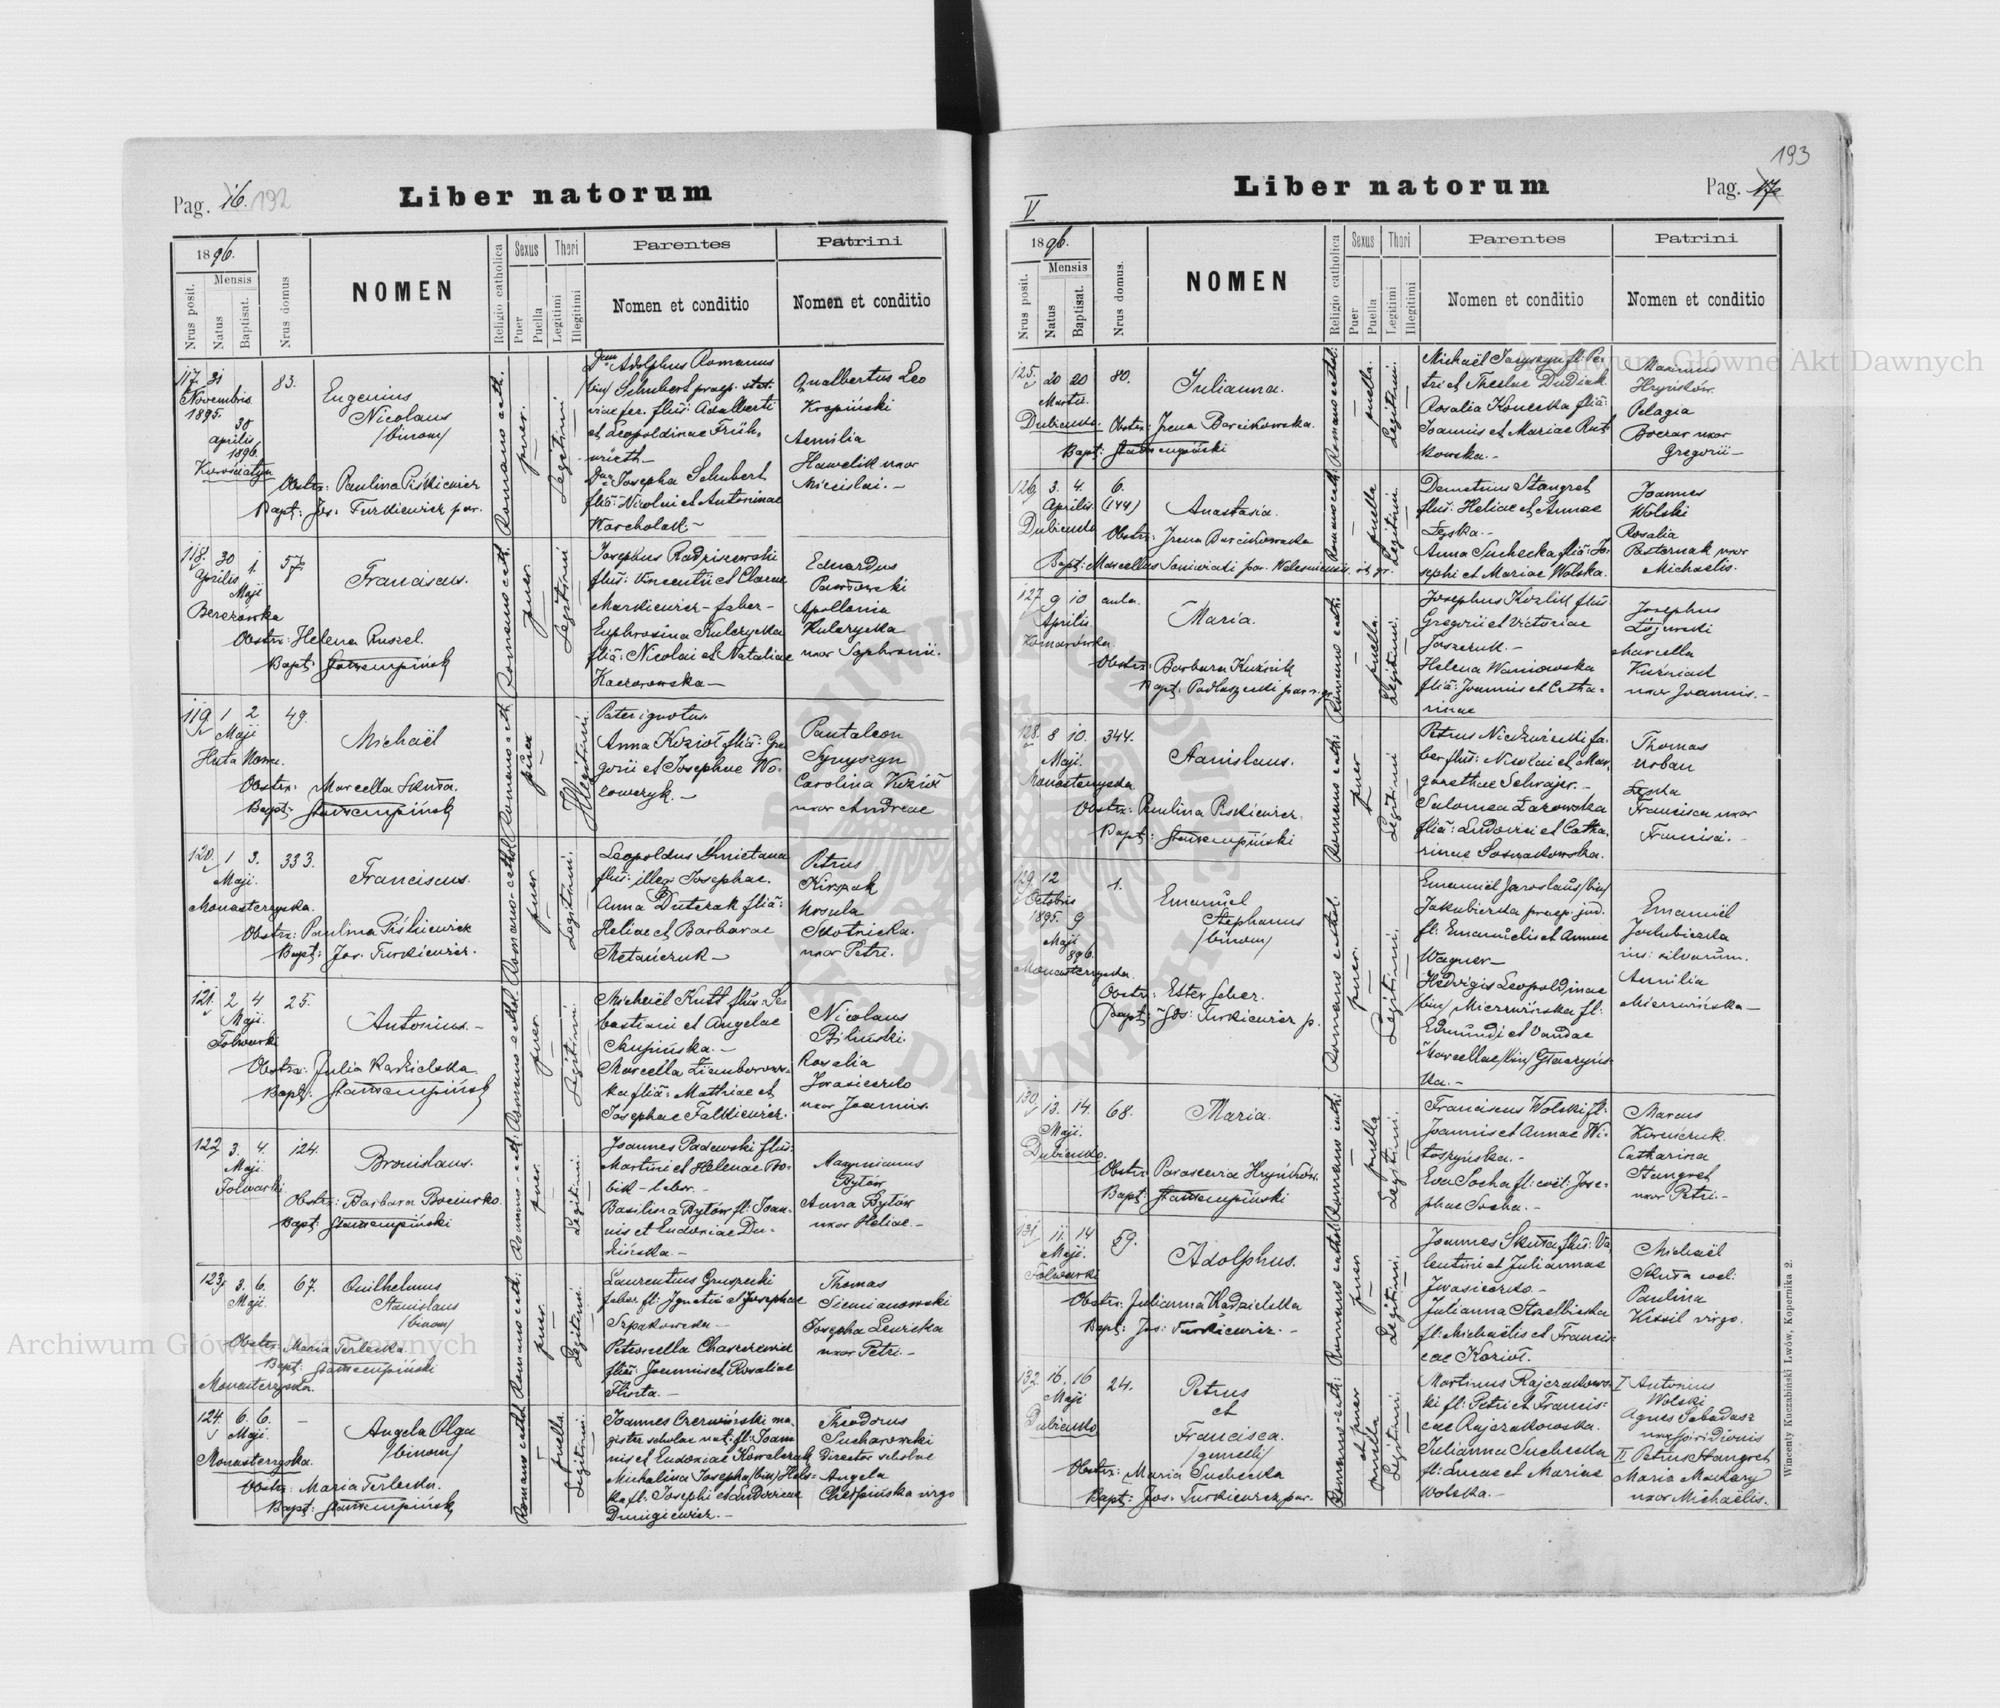 Pag. 16. 192
Liber natorum
1896.
Nrus posit.
Mensis
Natus
Baptisat.
Nrus domus
NOMEN
Religio catholica
Sexus
Puer
Puella
Thori
Legitimi
Illegitimi
Parentes
Nomen et conditio
Patrini
Nomen et conditio
117. 31
Novembris
1895.
30
Aprilis
1896.
83.
Eugenius
Nicolaus
/binom/
Obstr: Paulina Piśkiewicz
Bapt: Jos. Turkiewicz par.
Romano cath.
puer.
Legitimi
Adolphus Romanus
/bin/ Schubert praep. stat.
viae fer. flius: Adalberti
et Leopoldinae
Josepha Schubert
flia: Nicolai et Antoninae
Warcholak —
Qualbertus Leo
Kropiński
Aemilia
Hawelik uxor
Miecislai. —
118. 30
Aprilis
1.
Maji
Berezówka
57.
Franciscus.
Obstr: Helena Ruszel.
Bapt:
Romano cath.
puer.
Legitimi
Josephus Radziszewski
flius: Vincentii et Clarae
Markiewicz — faber —
Euphrosina Kulczycka
flia: Nicolai et Nataliae
Kaczorowska —
Eduardus
Apollonia
Kulczycka
uxor Sophronii.
119. 1 2
Maji
Huta Nowa.
49.
Michaël
Obstr: Marcella Skuta.
Bapt:
Romano cath
puer
Illegitimi.
Pater ignotus.
Anna Kozioł flia: Gre
gorii et Josephae Wo-
Pantaleon
Carolina Kozioł
uxor Andreae
120. 1 3.
Maji.
Monasterzyska.
333.
Franciscus.
Obstr: Paulina Piśkiewicz
Bapt: Jos. Turkiewicz.
Romano-cathol.
puer.
Legitimi.
Leopoldus Śmietana
flius: illeg. Josephae.
Anna Dutczak flia:
Heliae et Barbarae
Petrus
Ursula
Skotnicka.
uxor Petri.
121. 2 4
Maji.
Folwarki
25.
Antonius. —
Obstr: Julia Kadzielska
Bapt:
Romano cathol.
puer.
Legitimi.
Michaël Kutt flius: Se
bastiani et Angelae
Skupińska. —
Marcella
ka flia: Mathiae et
Josephae Falkiewicz.
Nicolaus
Biliński.
Rosalia
Iwasieczko
uxor Joannis.
122. 3. 4.
Maji.
Folwarki
124.
Bronislaus.
Obstr: Barbara Bociurko.
Bapt:
Romano-cath:
puer.
Legitimi.
Joannes Padewski flius:
Martini et Helenae Bo-
bik — labor. —
Basilina Bytów fl: Joan-
nis et Eudoxiae Du-
Maxymianus
Bytów
Anna Bytów
uxor Heliae. —
123. 3. 6.
Maji.
67.
Quilhelmus
Stanislaus
/binom/
Obstr: Maria Terlecka
Bapt:
Monasterzyska.
Romano cath:
puer.
Legitimi.
Laurentius Gruszecki
faber fl: Ignatii et Josephae
Szpakowska —
Petronella Charzewicz
flia: Joannis et Rosaliae
Thomas
Siemianowski
Josepha Lewicka
uxor Petri. —
124. 6. 6.
Maji.
Monasterzyska.
—
Angela Olga
/binom/
Obstr: Maria Terlecka.
Bapt:
Romano cathol
puella.
Legitimi.
Joannes Czerwiński ma-
gister scholae nat: fl: Joan
nis et Eudoxiae Kowalczuk
Michalina Josepha /bin/ Hals-
ka fl: Josephi et Ludovicae
Theodorus
Sucharowski
Director scholae
Angela
virgo
193
V
Liber natorum
Pag. 17
1896.
Nrus posit.
Mensis
Natus
Baptisat.
Nrus domus.
NOMEN
Religio catholica
Sexus
Puer
Puella
Thori
Legitimi
Illegitimi
Parentes
Nomen et conditio
Patrini
Nomen et conditio
125. 20 20
Martii.
Dubienko.
80.
Julianna.
Obstr: Irena Barcikowska.
Bapt:
Romano cathol:
puella.
Legitimi.
Michaël fl: Pe-
tri et Theclae Dudiak
Rosalia Konecka flia:
Joannis et Mariae Rut
kowska. —
Maximus
Hryńków.
Pelagia
Boczar uxor
Gregorii —
126. 3. 4.
Aprilis.
Dubienko
6.
(144)
Anastasia.
Obstr: Irena Barcikowska
Bapt: Marcellus
Romano cath:
puella
Legitimi.
Demetrius Stangret
flius: Heliae et Annae
Anna Suchecka flia: Jo-
sephi et Mariae Wolska.
Joannes
Wolski
Rosalia
Pasternak uxor
Michaelis.
127. 9 10
Aprilis
Komarówka.
aula.
Maria.
Obstr: Barbara Kuźnik
Bapt:
Romano cath:
puella.
Legitimi.
Josephus Kozlik flius:
Gregorii et Victoriae
Helena Waniowska
flia: Joannis et Catha-
rinae
Josephus
Marcella
Kuźniak
uxor Joannis. —
128. 8 10.
Maji.
Monasterzyska
344.
Stanislaus.
Obstr: Paulina Piskiewicz.
Bapt:
Romano cath:
puer
Legitimi
Petrus Niedźwiecki fa-
ber flius: Nicolai et Mar-
garethae Schrajer. —
Salomea Łazowska
flia: Ludovici et Catha-
rinae Sosnakowska.
Thomas
Urban
Francisca uxor
Francisci. —
129. 12
Octobris
1895. 9
Maji
896.
Monasterzyska.
1.
Emanuël
Stephanus
/binom/
Obstr: Ester Seher.
Bapt: Jos: Turkiewicz p.
Romano cathol.
puer.
Legitimi.
Emanuël Jaroslaus /bin/
Jakubiczka praep: jud.
fl: Emanuelis et Annae
Wagner —
Hedvigis Leopoldinae
/bin/ Mierzwińska fl:
Edmundi et Vandae
Marcellae /bin/
ka. —
Emanuël
Jakubiczka
ins: silvarum.
Aemilia
Mierzwińska —
130. 13. 14.
Maji.
Dubienko.
68.
Maria.
Obstr: Parascevia Hryńków.
Bapt:
Romano cath:
puella
Legitimi.
Franciscus Wolski fl:
Joannis et Annae Wi-
toszyńska. —
Eva Socha fl: Jose-
phae Socha. —
Marcus
Catharina
Stangret
uxor Petri. —
131. 11. 14
Maji.
Folwarki
59.
Adolphus.
Obstr: Julianna Kadzielska
Bapt: Jos: Turkiewicz. —
Romano cathol
puer
Legitimi.
Joannes Skuta flius: Va
lentini et Juliannae
Iwasieczko. —
Julianna Strzelbicka
fl: Michaëlis et Francis-
cae Kozioł.
Michaël
Skuta coel.
Paulina
Kisiel virgo.
132. 16. 16
Maji
Dubienko
24.
Petrus
et
Francisca.
/gemelli/
Obstr: Maria Suchecka
Bapt: Jos: Turkiewicz par.
Romano-cath:
puer
et
puella
Legitimi.
Martinus Rajczakows-
ki fl: Petri et Francis-
cae Rajczakowska.
Julianna Suchecka
fl: Lucae et Mariae
Wolska. —
I Antonius
Wolski
Agnes Sabadasz
uxor Spiridionis
II Petrus Stangret
Maria Mackary
uxor Michaëlis.
Wincenty Kuczabiński Lwów, Kopernika 2.
Archiwum Główne Akt Dawnych
Archiwum Główne Akt Dawnych